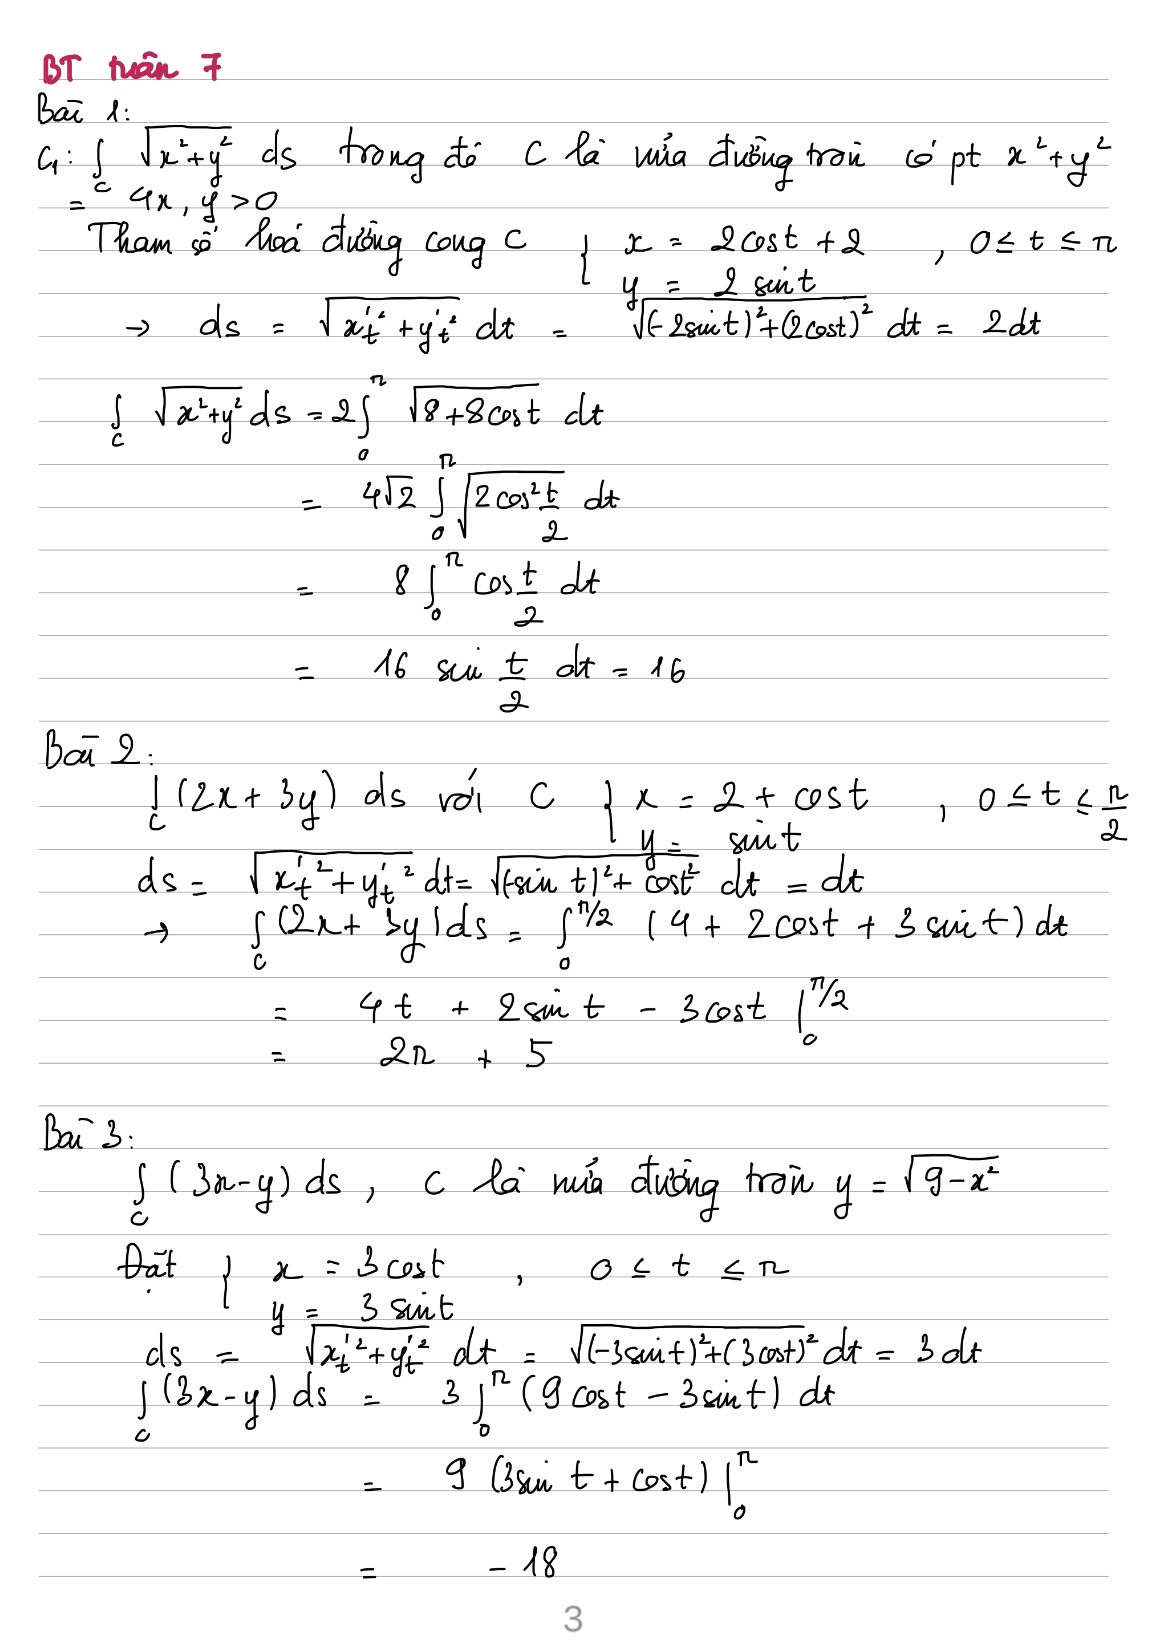 BT tuần 7
Bài 1:
C₁: ∫_C √(x²+y²) ds trong đó C là nửa đường tròn có pt x²+y²
= 4x, y > 0
Tham số hoá đường cong C { x = 2cost + 2 , 0 ≤ t ≤ π
y = 2 sin t
→ ds = √(x'ₜ² + y'ₜ²) dt = √((-2sin t)²+(2cost)²) dt = 2dt
∫_C √(x²+y²) ds = 2 ∫_0^π √(8+8cost) dt
= 4√2 ∫_0^π √(2cos² t/2) dt
= 8 ∫_0^π cos t/2 dt
= 16 sin t/2 dt = 16
Bài 2:
∫_C (2x + 3y) ds với C { x = 2 + cost , 0 ≤ t ≤ π/2
y = sin t
ds = √(x'ₜ² + y'ₜ²) dt = √((-sin t)² + cost²) dt = dt
→ ∫_C (2x + 3y) ds = ∫_0^π/2 (4 + 2cost + 3 sin t) dt
= 4t + 2sin t - 3cost |_0^π/2
= 2π + 5
Bài 3:
∫_C (3x-y) ds, C là nửa đường tròn y = √(9-x²)
Đặt { x = 3cost , 0 ≤ t ≤ π
y = 3 sin t
ds = √(x'ₜ² + y'ₜ²) dt = √((-3sin t)²+(3cost)²) dt = 3 dt
∫_C (3x-y) ds = 3 ∫_0^π (9cost - 3sin t) dt
= 9 (3sin t + cost) |_0^π
= -18
3